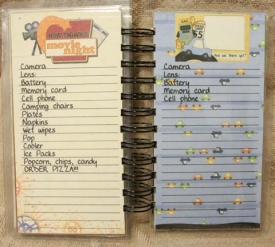 movie night
Camera
Lens:
Battery
Memory card
Cell phone
Camping chairs
Plates
Napkins
Wet wipes
Pop
Cooler
Ice Packs
Popcorn, chips, candy
ORDER PIZZA!!!
Are we there yet?
Camera
Lens:
Battery
Memory card
Cell phone